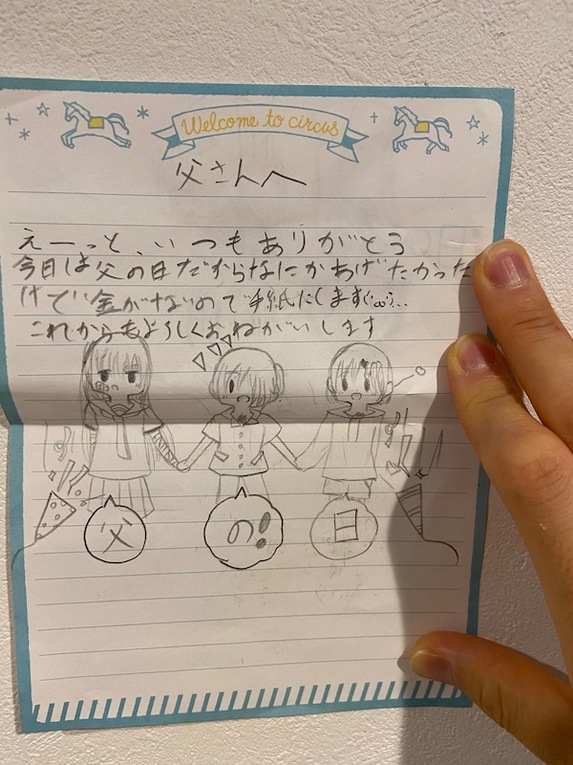 Welcome to circus
父さんへ
えーっと、いつもありがとう
今日は父の日だからなにかあげたかった
けど金がないので手紙にします
これからもよろしくおねがいします
父
の!
日